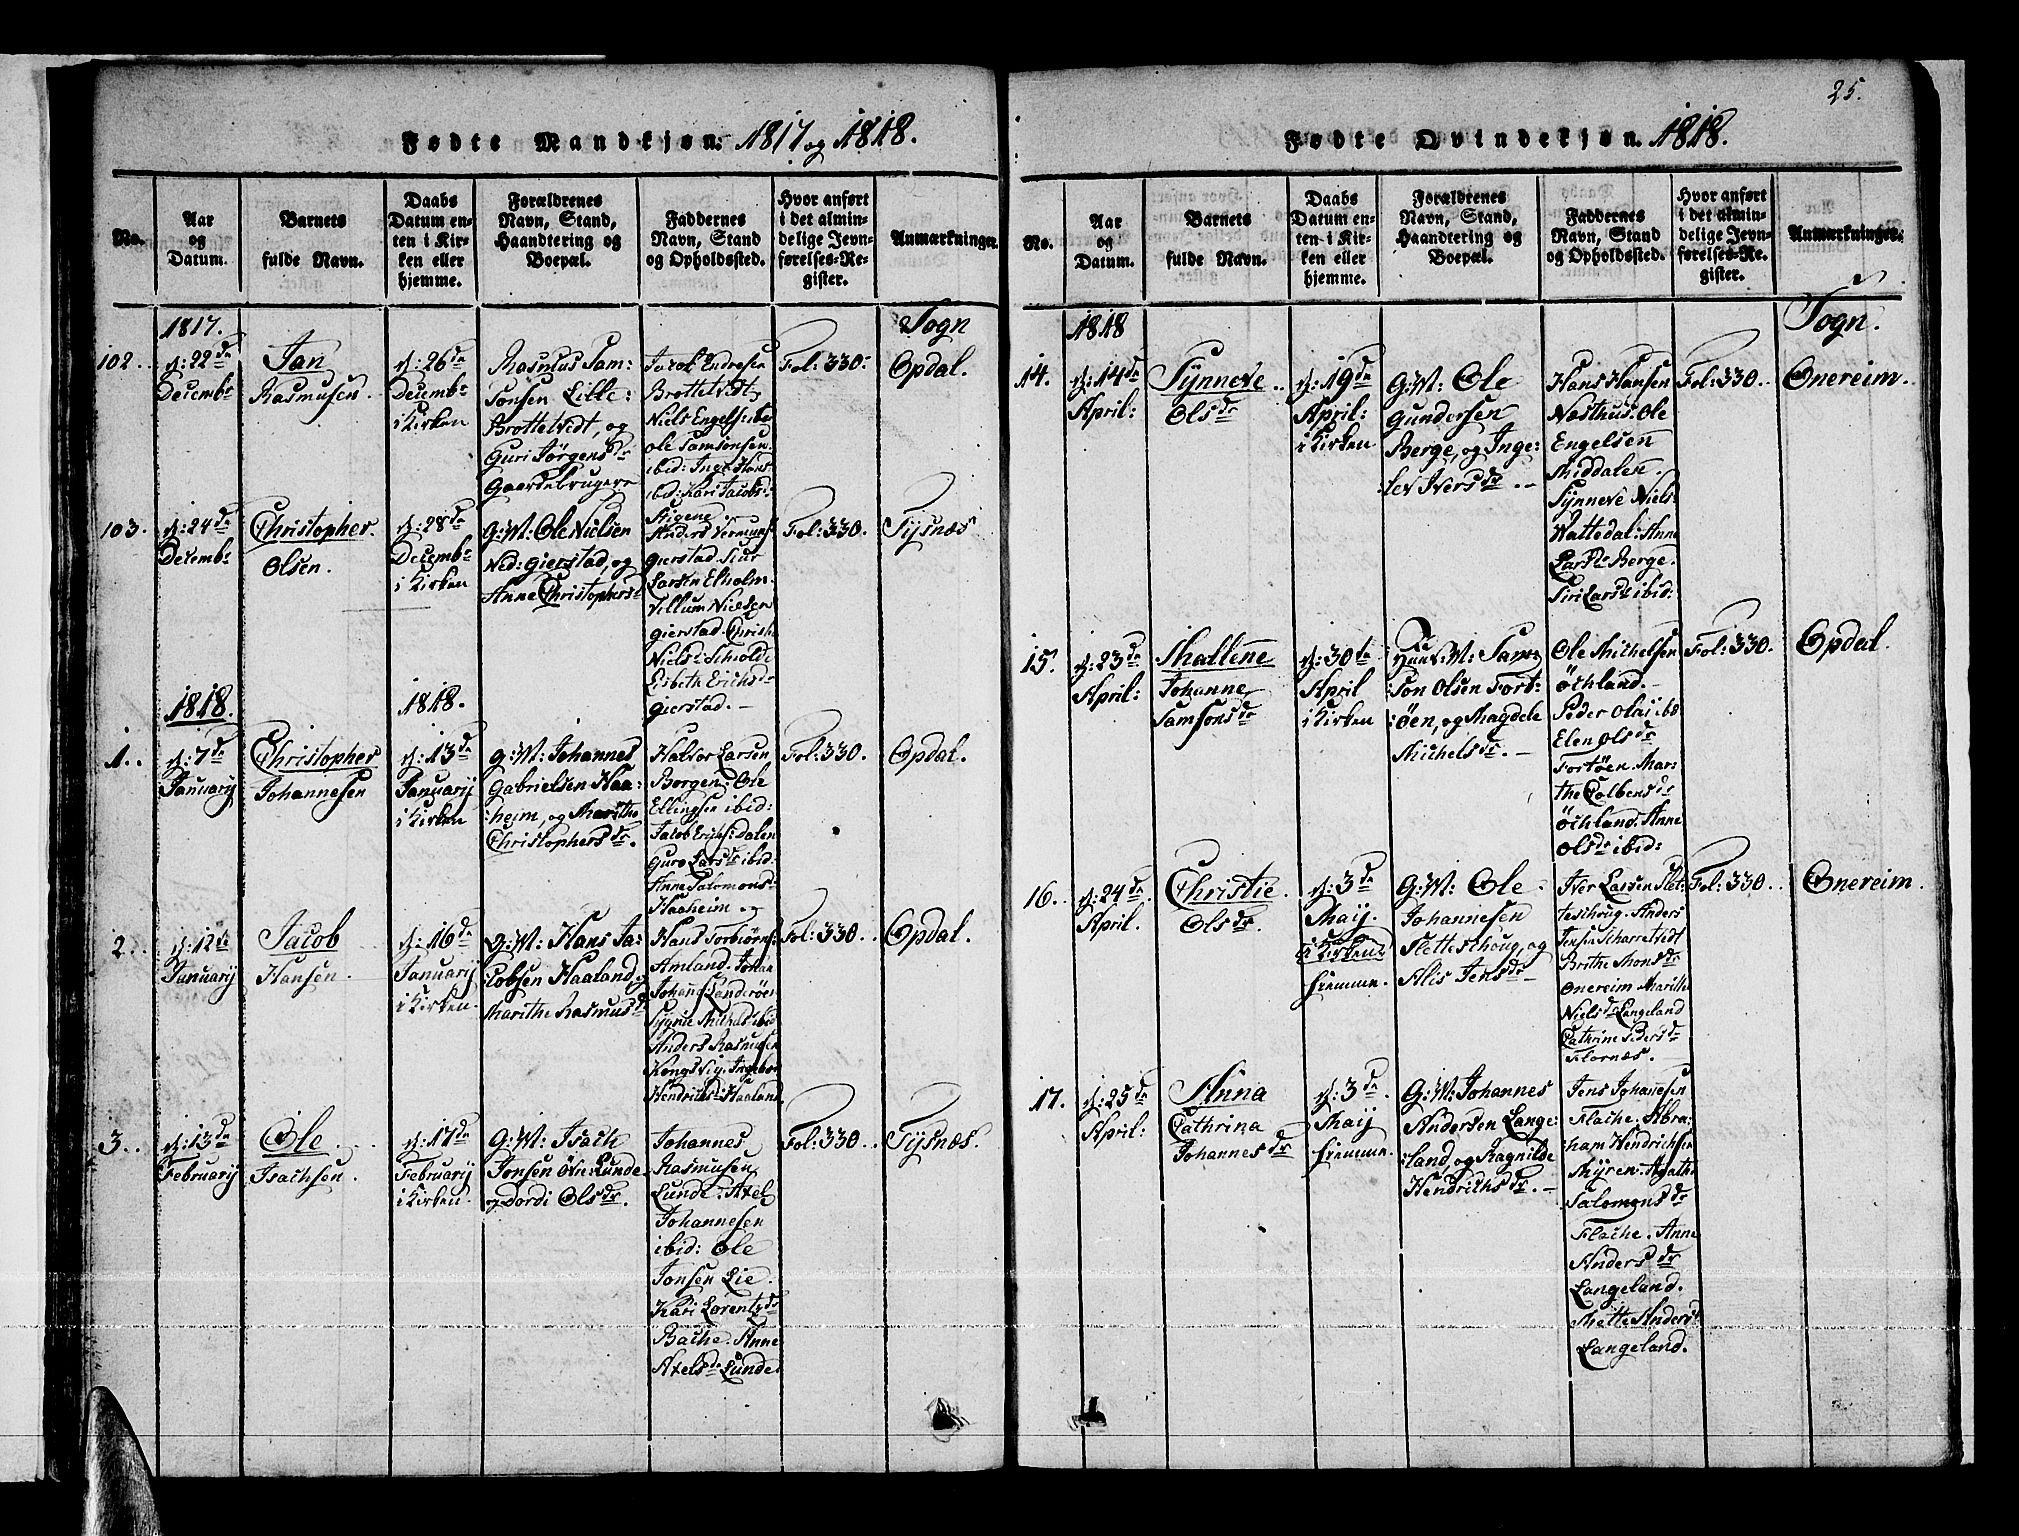 Fødte Mandkjøn. 1817 og 1818.
No.
Aar
og
Datum.
Barnets
fulde Navn.
Daabs
Datum en-
ten i Kir-
ken eller
hjemme.
Forældrenes
Navn, Stand,
Haandtering og
Boepæl.
Faddernes
Navn, Stand
og Opholdssted.
Hvor anført
i det almin-
delige Jevn-
førelses-Re-
gister.
Anmærkninger.
1817.
Sogn
102.
d: 22de
Decembr
Jan
Rasmusen.
d: 26de
Decembr
i Kirken
Rasmus Sam:
sonsen Lille:
Brottetvedt, og
Guri Jørgensdr
Gaardebrugere
Jacob Endresen
Brottetvedt,
Niels Engels: ibd
Ole Samsonsen
ibid: Inge Hans
ibid: Kari Jacobs:
Fol: 330.
Opdal.
103.
d: 24de
Decembr
Christopher
Olsen.
d: 28de
Decembr
i Kirken
G: M: Ole Nielsen
Ned: Gierstad, og
Anne Christophers
Anders
Gierstad. Siur
Larsen Elholm.
Villum Nielsen
Gierstad. Christi
Lisbeth Erichsdr
Gierstad. —
Fol: 330.
Tysnæs
1818.
1818.
1.
d: 7de
Januarij
Christopher
Johannesen
d: 13de
Januarij
i Kirken
G: M: Johannes
Gabrielsen Haa:
:heim, og Marithe
Christophersdr.
Halvor Larsen
Borgen: Ole
Ellingsen ibid:
Jacob Erichs: Dalen
Guro Larsdr ibid:
Anne Salomons
Haaheim
Fol: 330.
Opdal.
2.
d: 12te
Januarij
Jacob
Hansen.
d: 16de
Januarij
i Kirken.
G: M: Hans Ja:
:cobsen Haaland, og
Marithe Rasmusd
Hans Torbiørns
Amland. Johan
Anders Rasmusen
Kongsvig. Ingebor
Hendrichs: Haaland.
Fol: 330.
Opdal.
3.
d: 13de
Februarij
Ole
Isachsen.
d: 17de
Februarij
i Kirken.
G: M: Isach
Jonsen Øvre: Lunde
og Dordi Olsdr.
Johannes
Rasmusen
Lunde. Axel
Johannesen
ibid: Ole
Jonsen Lie.
Kari Lorentzdr
Bache. Anne
Axelsdr Lunde
Fol: 330.
Tysnæs.
25.
Fødte Qvindekjøn. 1818.
No.
Aar
og
Datum.
Barnets
fulde Navn.
Daabs
Datum en-
ten i Kir-
ken eller
hjemme.
Forældrenes
Navn, Stand,
Haandtering og
Boepæl.
Faddernes
Navn, Stand
og Opholdssted.
Hvor anført
i det almin-
delige Jevn-
førelses-Re-
gister.
Anmærkninger.
1818
Sogn.
14.
d: 14de
April:
Synneve
Olsdr
d: 19de
April:
i Kirken
G: M: Ole
Gundersen
Berge, og Inge:
lev Iversdr. —
Hans Hansen
Næsthus. Ole
Engelsen
Middalen.
Synneve Niels
Wattedal: Anne
Larsdr Berge.
Siri Lars ibid:
Fol: 330.
Onereim.
15.
d: 23de
April:
Mallene
Johanne
Samsonsdr
d: 30te
April
i Kirken
M: Sam
son Olsen Fort:
:øen, og Magdele
Michelsdr. —
Ole Michelsen
Øchland. —
Peder Olai ibd
Elen Olsdr
Fortøen. Mar:
the Colbensdr
Øchland. Anne
Olsdr ibid:
Fol: 330.
Opdal.
16.
d: 24de
April.
Christie
Olsdr.
d: 3de
Maij.
i Kirken
fremme.
G: M: Ole
Johannesen
Sletteschoug, og
Alis Jensdr —
Iver Larsen Slet:
teschoug. Anders
Jensen Scharretvedt
Brithe Monsdr
Onereim. Marithe
Nielsdr Langeland
Cathrine Pedersdr
Flornæs. —
Fol: 330.
Onereim
17.
d: 25de
April:
Anna
Cathrina
Johannesdr
d: 3de
Maij
fremme.
G: M: Johannes
Andersen Lange:
:land, og Ragnilde
Hendrichsdr. —
Jens Johanesen
Flache. Abra:
ham Hendrichsen
Myren. Agatha
Salomonsdr
Flache. Anne
Andersdr
Langeland.
Mette Anders
Langeland.